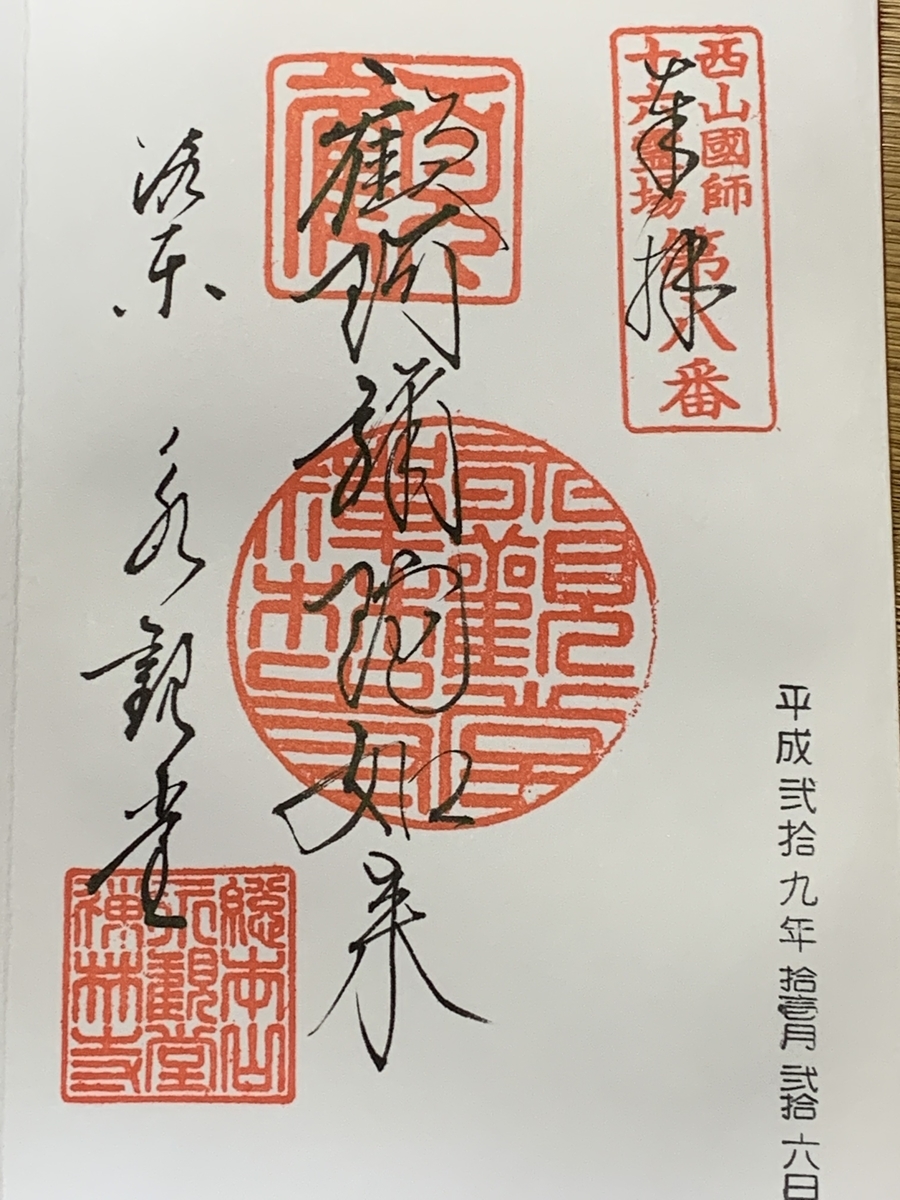 西山國師
十六靈場
第八番
奉拝
顧阿彌陀如来
洛東 永観堂
總本山
永觀堂
禅林寺
平成弐拾九年拾壹月弐拾六日